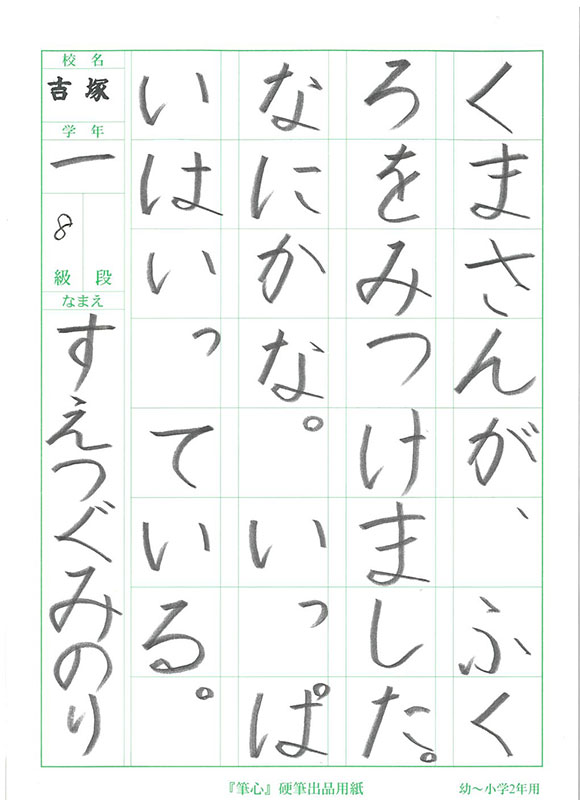 くまさんが、ふく
ろをみつけました。
なにかな。いっぱ
いはいっている。
校名
吉塚
学年
一
8
級段
なまえ
すえつぐみのり
『筆心』硬筆出品用紙
幼〜小学2年用